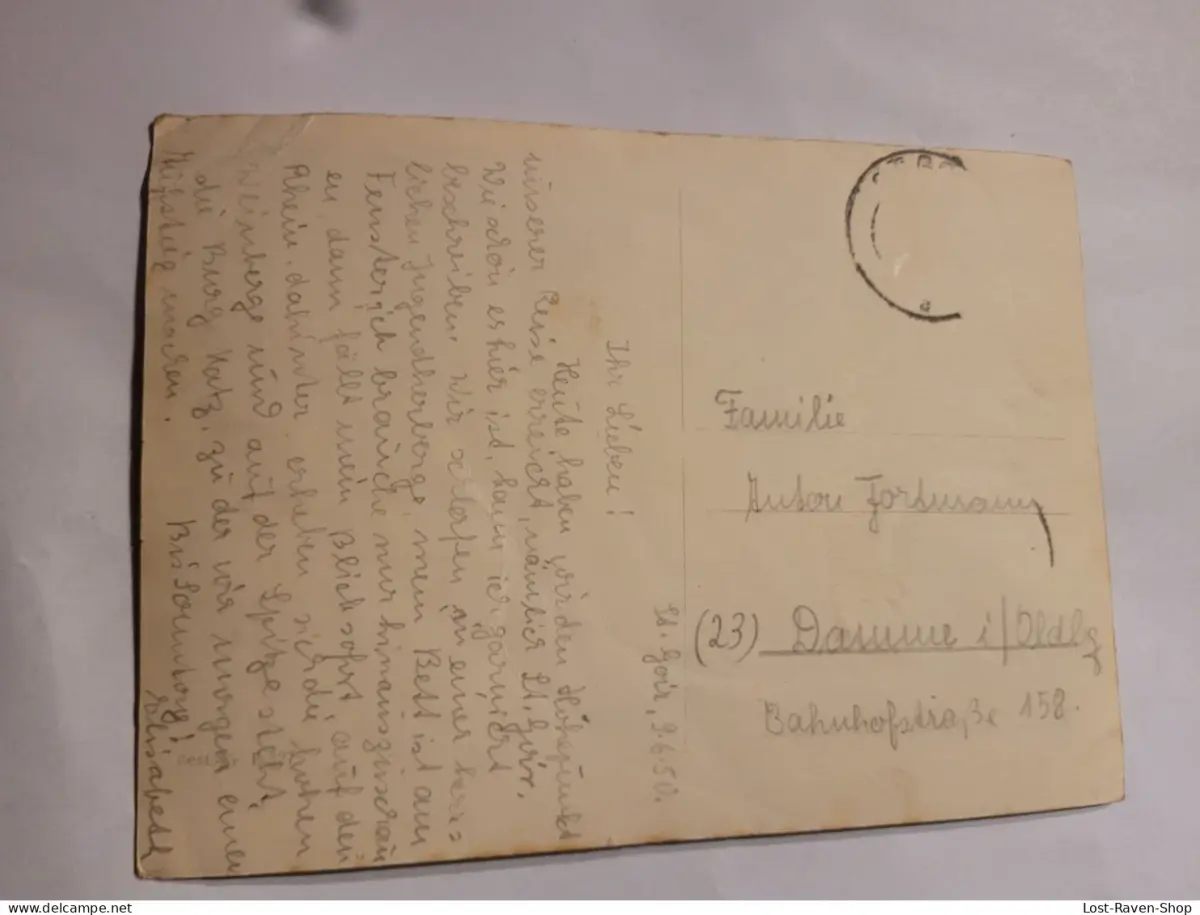 St. Goir, 9.6.50.
Ihr Lieben!
Heute haben wir den Höhepunkt
unserer Reise erreicht, nämlich St. Goir.
Wie schön es hier ist, kann ich gar nicht
beschreiben. Wir schlafen in einer herr=
lichen Jugendherberge, mein Bett ist am
Fenster, ich brauche nur hinauszuschau
en, dann fällt mein Blick sofort auf den
Rhein, dahinter erheben sich die hohen
Weinberge und auf der Spitze steht
die Burg Katz, zu der wir morgen einen
Aufstieg machen.
Bis Sonntag!
Elisabeth
Familie
Anton Fortmann
(23) Damme i/Oldbg
Bahnhofstraße 158.
Lost-Raven-Shop
delcampe.net